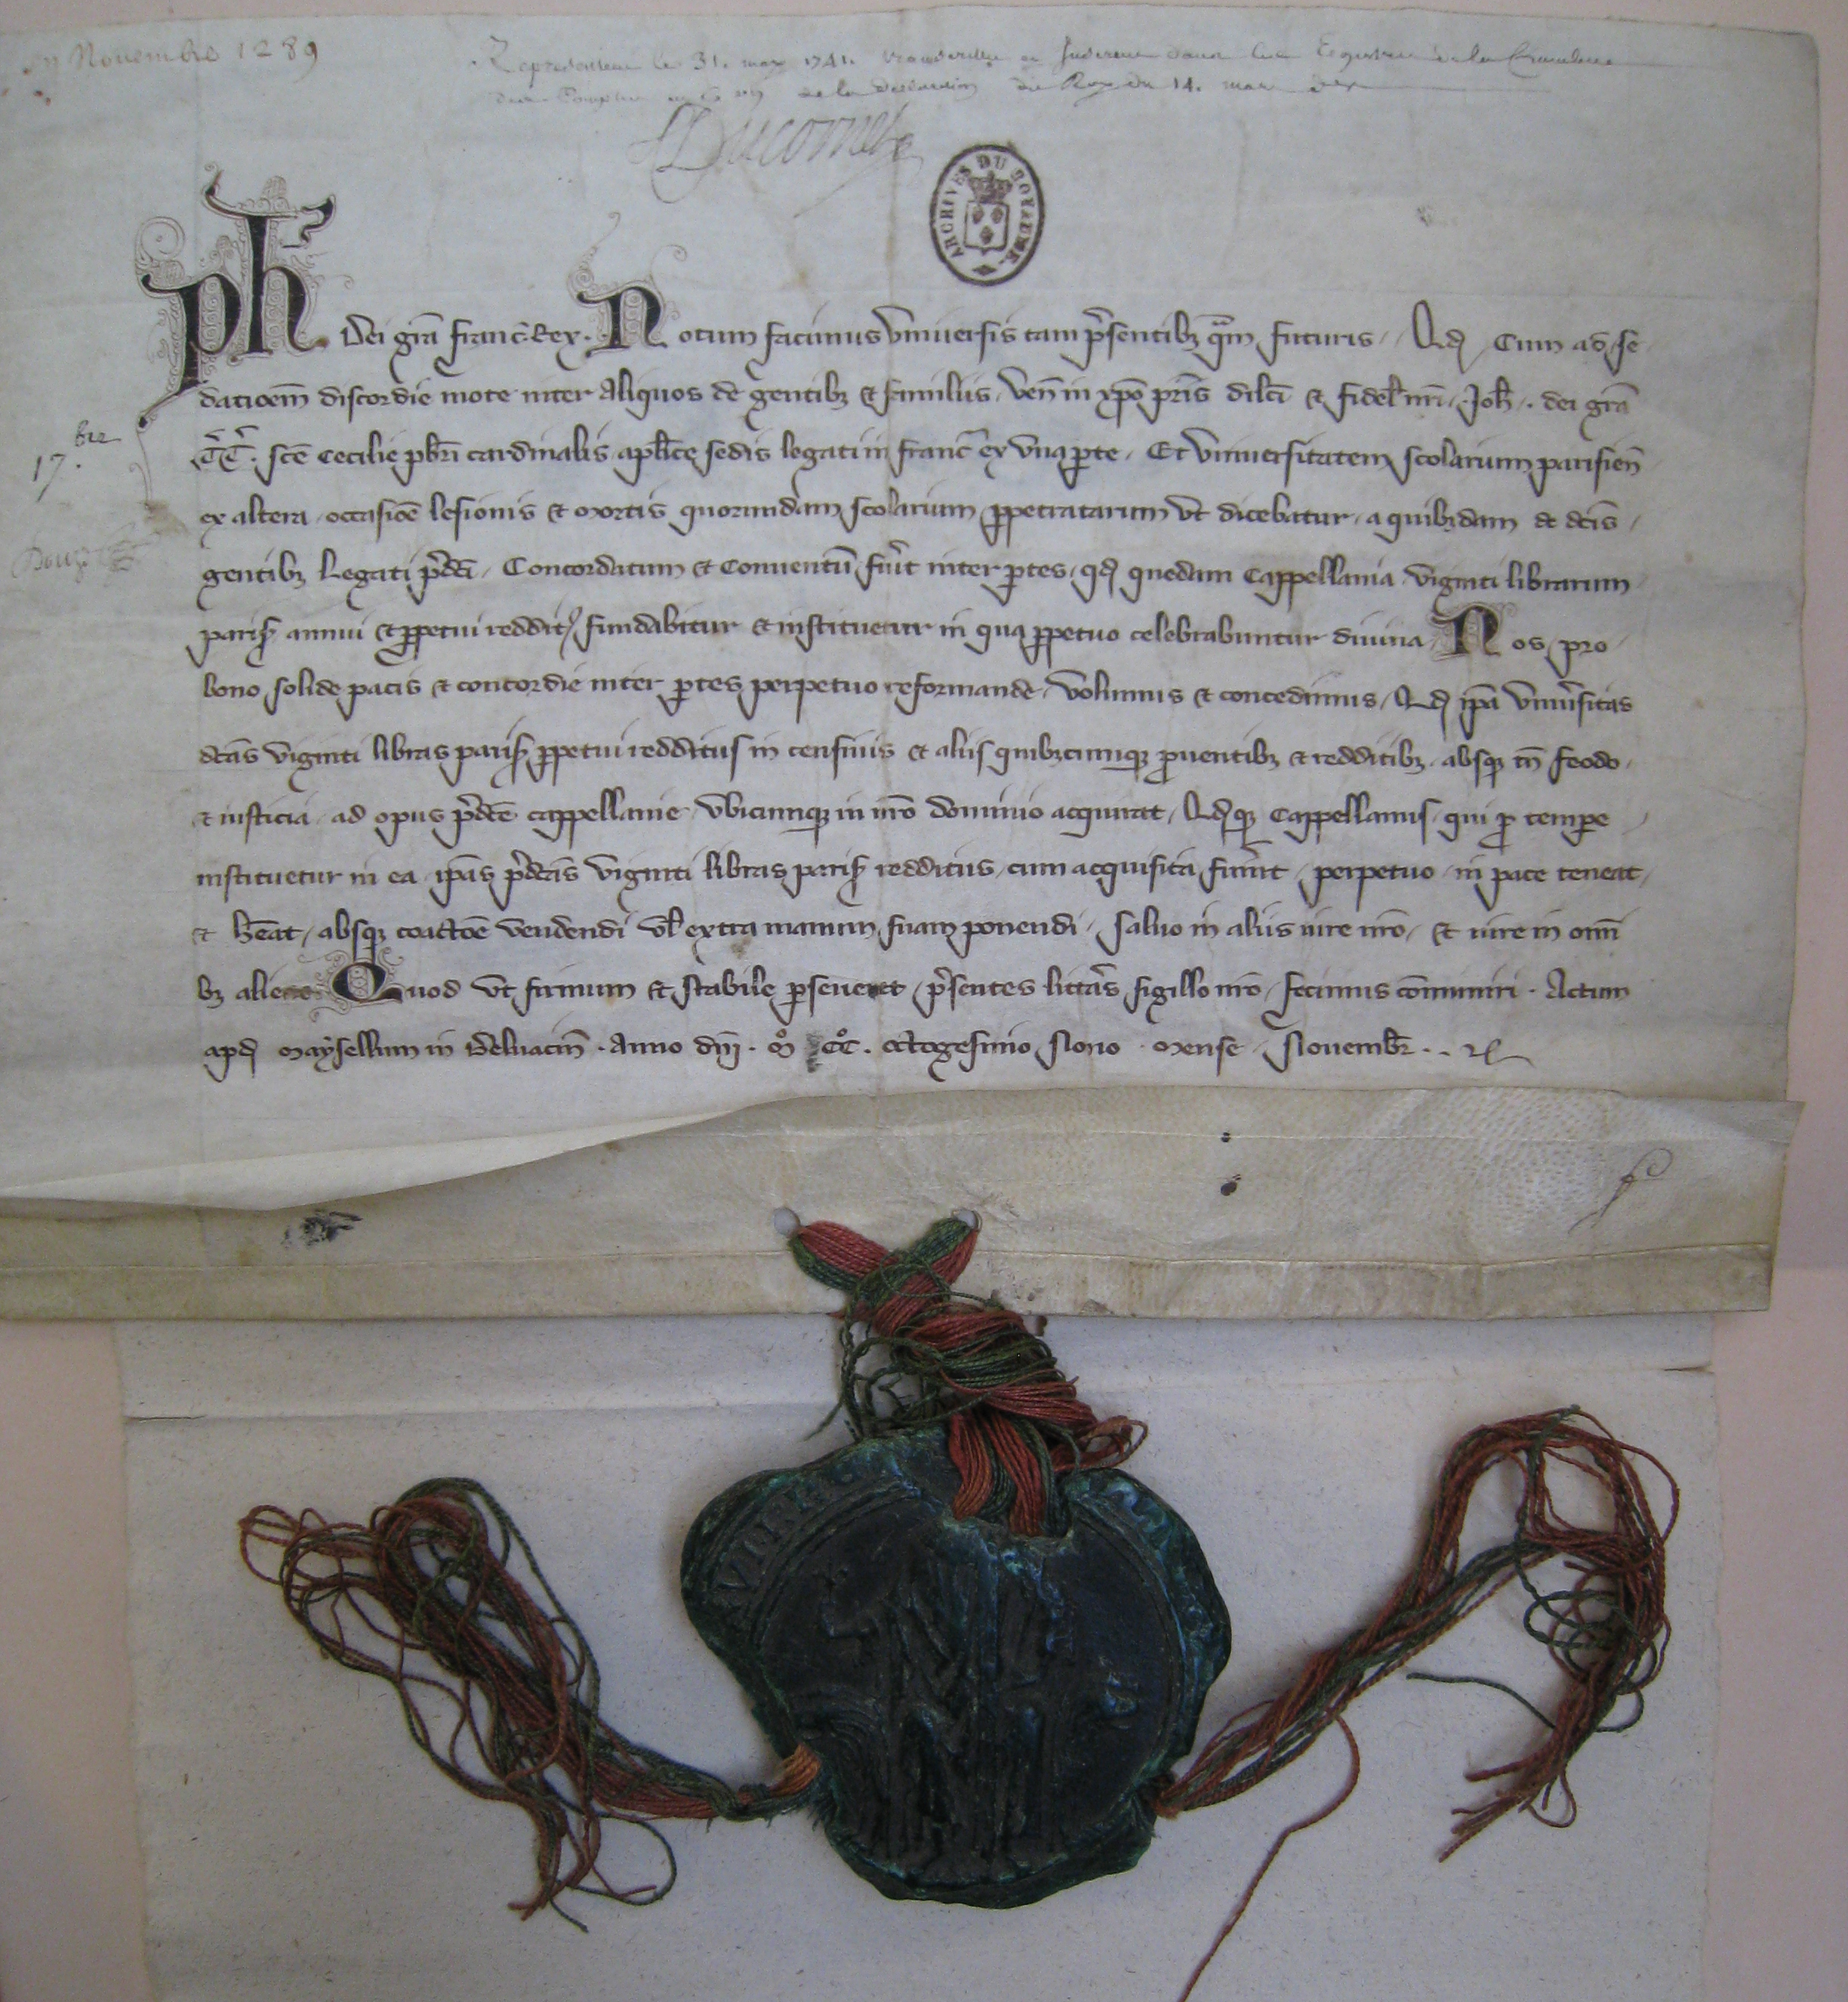 Novembre 1289
le 31. may 1741.
de la declaration du Roy du 14. mars
Ducornet
ARCHIVES DU ROYAUME
Ph Dei grã Franc̃ Rex. Notum facimus Vniuersis tam p̃sentibꝫ q̃m futuris, Qd Cum ad se
datioem̃ discordie mote inter Aliquos de gentibꝫ & familiis, Ven̄ in xp̃o pr̃is dilc̃i & fidel̃ nr̃i, Joh̃. dei grã
T̃T̃. sc̃e Cecilie pbr̃i cardinalis ap̃lice sedis legati in franc̃ ex vna ꝑte, Et Vniuersitatem scolarium parisien̄
ex altera, occasiõe lesionis & mortis quorumdam scolarium ꝑpetratarum vt dicebatur, a quibꝫdam de dc̃is,
gentibꝫ Legati p̃dc̃i, Concordatum & Conuentũ fu͛it inter ꝑtes, qd quedam Cappellania viginti librarum
paris̃ annui & ꝑpetui reddit᷒, fundabitur & instituetur in qua ꝑpetuo celebrabuntur diuina, Nos, pro
bono solide pacis & concordie inter ꝑtes perpetuo reformande, Volumus & concedimus, Qd ip̃a Vniu͛sitas
dc̃as viginti libras paris̃ ꝑpetui redditus in censiuis & aliis quibꝫcumqꝫ ꝓuentibꝫ & redditibꝫ, absqꝫ tñ feodo,
& iusticia, ad opus p̃dc̃e cappellanie, vbicumqꝫ in nr̃o dominio acquirat, Qdqꝫ Cappellanus, qui ꝓ tempe
instituetur in ea, ip̃as p̃dc̃as viginti libras paris̃ redditus, cum acquisita fu͛int, perpetuo, in pace teneat,
& h̃eat, absqꝫ coactõe vendendi vl̃ extra manum suam ponendi, saluo in aliis iure nr̃o, & iure in om̃i
bꝫ alieno Quod vt firmum & stabile ꝑseueret, p̃sentes litt͛as sigillo nr̃o, fecimus cõmuniri. Actum
apd Maysellum in Beluacin̄. Anno dñi. M̊ CC̊. octogesimo Nono. Mense, Nouembr̃.
17. bre